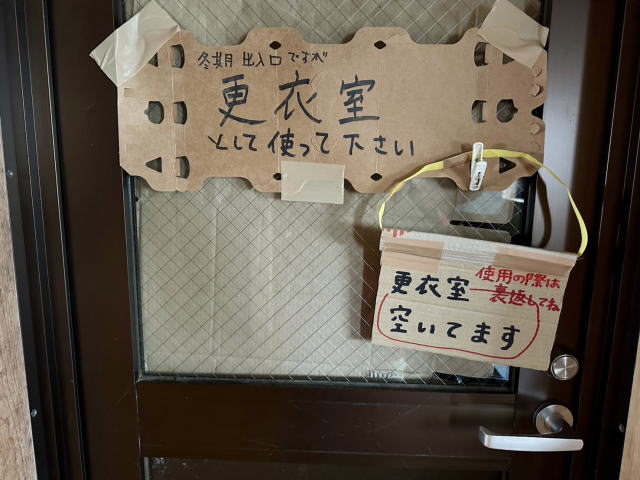 冬期 出入口ですが
更衣室
として使って下さい
更衣室
使用の際は
裏返してね
空いてます